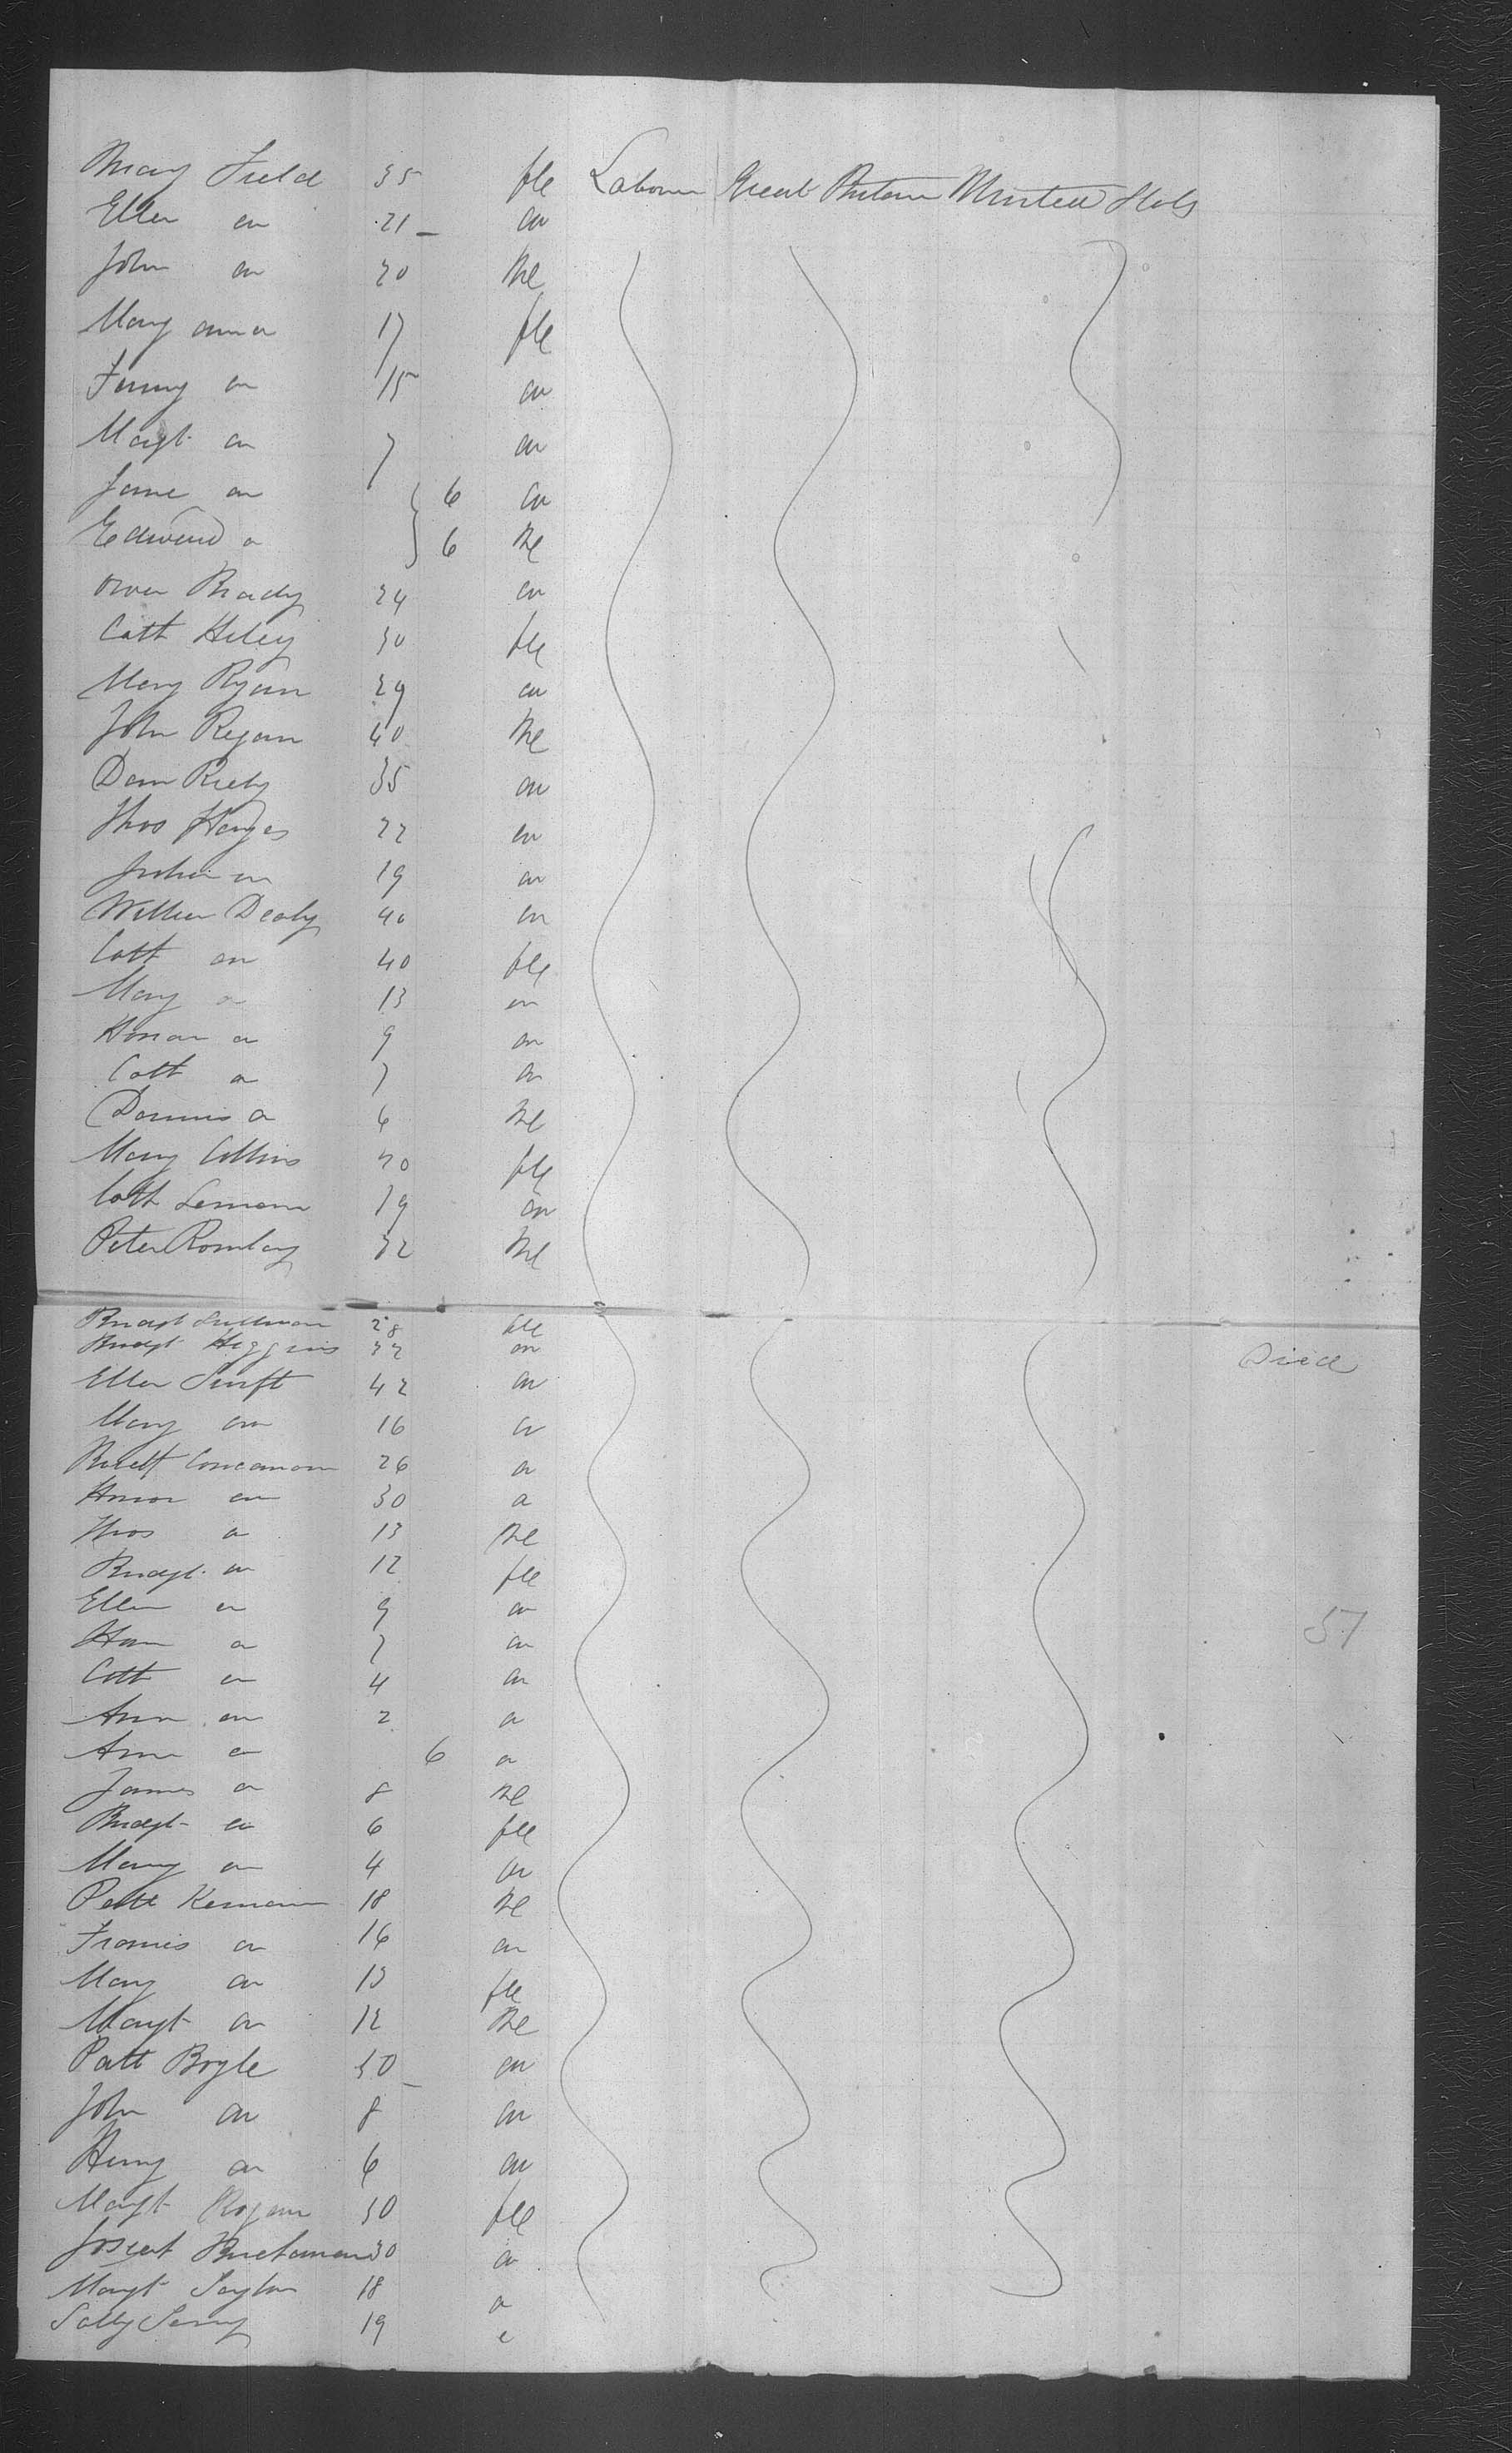 Mary Field 35 fle Labourer Great Britain United Stats
Ellen do 21 do
John do 20 Me
Mary ann do 17 fle
Fanny do 15 do
Margt do 7 do
Jane do 6 do
Edward do 6 Me
Owen Brady 24 do
Cath Heley 30 fle
Mary Ryan 29 do
John Regan 40 Me
Dan Riely 35 do
Thos Hayes 22 do
do 19 do
William Dealy 40 do
Cath do 40 fle
Mary do 13 do
Honor do 9 do
Cath do 7 do
Dennis do 6 Me
Mary Collins 20 fle
Cath 19 do
Peter 32 Me
Bridgt Sullivan 28 fle
Bridgt Higgins 32 do Died
Ellen Swift 42 do
Mary do 16 do
Concannon 26 do
Honor do 30 do
Thos do 13 Me
Bridgt do 12 fle
Ellen do 9 do
do 7 do
Cath do 4 do
57
Ann do 2 do
Ann do 6 do
James do 8 Me
Bridgt do 6 fle
Mary do 4 do
Patt 18 Me
Francis do 16 do
Mary do 13 fle
Margt do 12 Me
Patt Boyle 30 do
John do 8 do
Henry do 6 do
Margt Rogan 30 fle
Buchanan 30 do
Margt Taylor 18 do
Sally 19 do